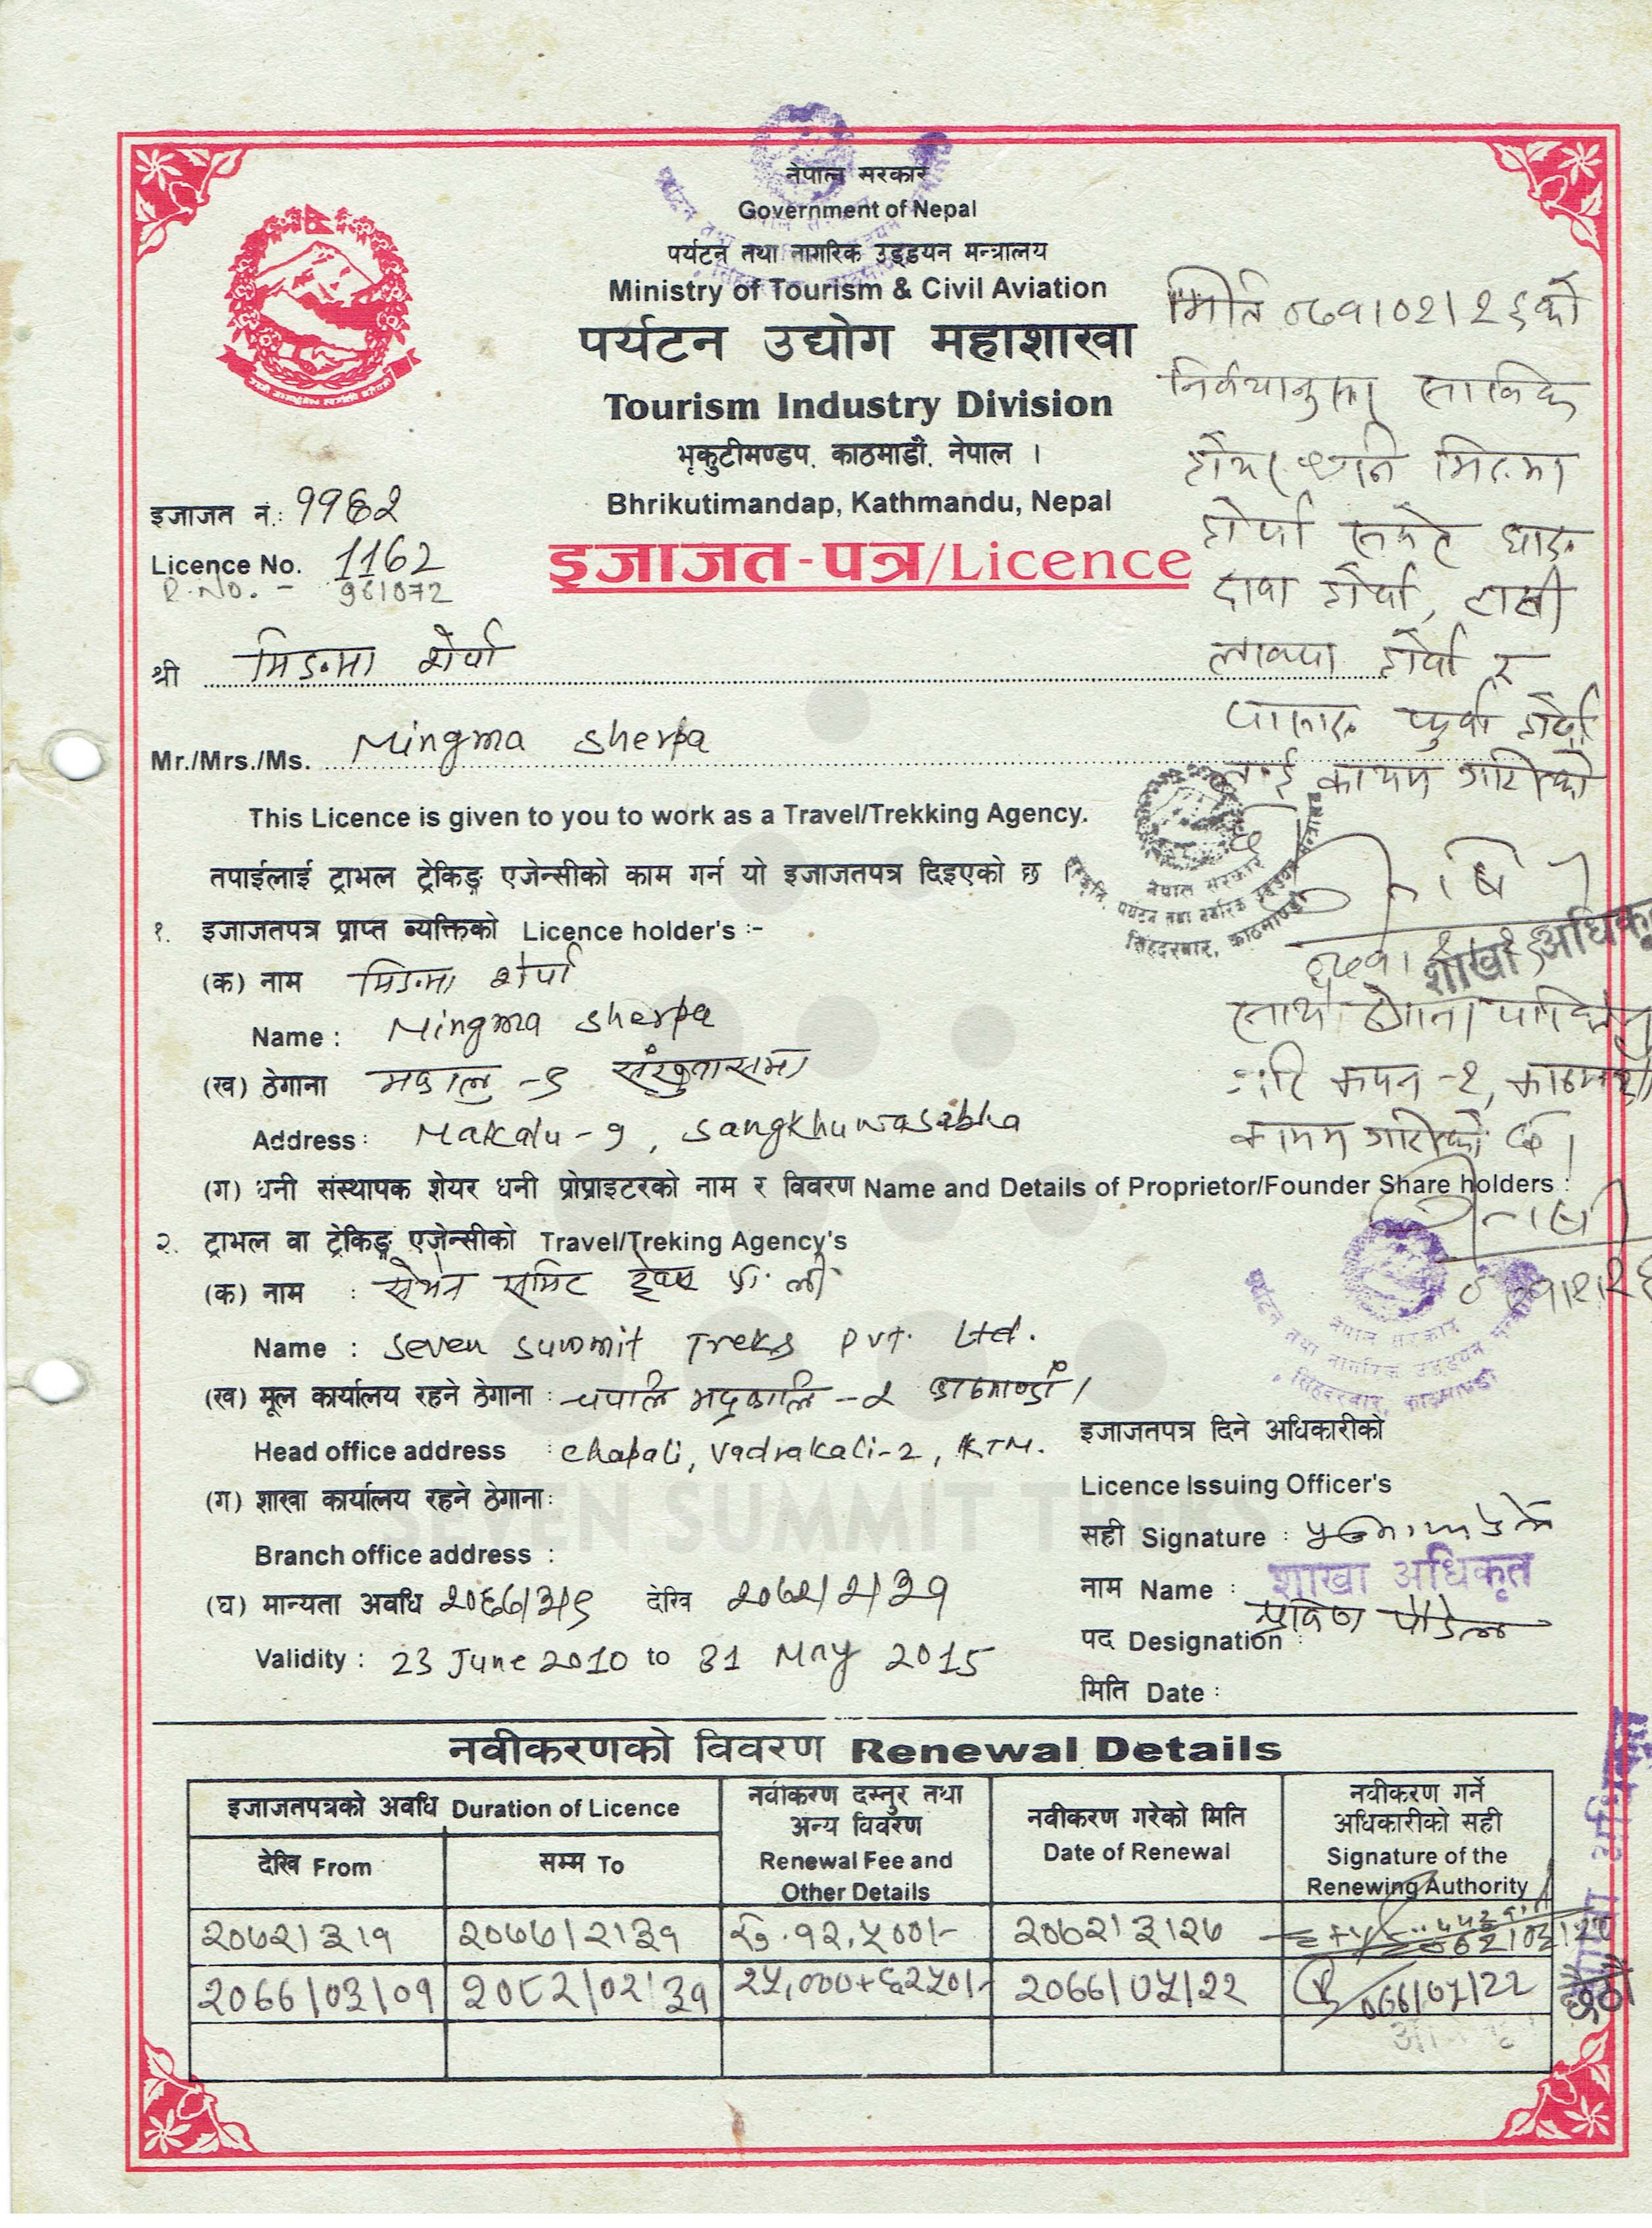 नेपाल सरकार
Government of Nepal
पर्यटन तथा नागरिक उड्डयन मन्त्रालय
Ministry of Tourism & Civil Aviation
पर्यटन उद्योग महाशाखा
Tourism Industry Division
भृकुटीमण्डप, काठमाडौं, नेपाल ।
Bhrikutimandap, Kathmandu, Nepal
इजाजत नं.: ११६२
Licence No. 1162
R.No. - 961072
इजाजत-पत्र/Licence
श्री मिङमा शेर्पा
Mr./Mrs./Ms. Mingma Sherpa
This Licence is given to you to work as a Travel/Trekking Agency.
तपाईलाई ट्राभल ट्रेकिङ्ग एजेन्सीको काम गर्न यो इजाजतपत्र दिइएको छ ।
१. इजाजतपत्र प्राप्त व्यक्तिको Licence holder's :-
(क) नाम मिङमा शेर्पा
Name : Mingma Sherpa
(ख) ठेगाना मकालु -९ संखुवासभा
Address : Makalu-9, Sangkhuwasabha
(ग) धनी संस्थापक शेयर धनी प्रोप्राइटरको नाम र विवरण Name and Details of Proprietor/Founder Share holders :
२. ट्राभल वा ट्रेकिङ्ग एजेन्सीको Travel/Treking Agency's
(क) नाम : सेभेन समिट ट्रेक्स प्रा. ली.
Name : Seven Summit Treks Pvt. Ltd.
(ख) मूल कार्यालय रहने ठेगाना : चपलि भद्रकालि -२ काठमाण्डौं ।
Head office address : Chapali, Vadrakali-2, KTM.
(ग) शाखा कार्यालय रहने ठेगाना :
Branch office address :
(घ) मान्यता अवधि २०६७/३/९ देखि २०७२/२/३१
Validity : 23 June 2010 to 31 May 2015
मिति ०७१।०२।२६ को
निर्णयानुसार साविक
शेयर धनि मिङमा
शेर्पा
दावा शेर्पा, टासी
लाक्पा शेर्पा र
पासाङ फुर्वा शेर्पा
लाई कायम गरिएको
छ ।
शाखा अधिकृत
साथै ठेगाना
गरि कपन -१, काठमाडौं
कायम गरिएको छ ।
नेपाल सरकार
पर्यटन तथा नागरिक उड्डयन मन्त्रालय
सिंहदरबार, काठमाण्डौ
इजाजतपत्र दिने अधिकारीको
Licence Issuing Officer's
सही Signature :
शाखा अधिकृत
नाम Name :
पद Designation :
मिति Date :
SEVEN SUMMIT TREKS
नवीकरणको विवरण Renewal Details
इजाजतपत्रको अवधि Duration of Licence
देखि From
सम्म To
नवीकरण दस्तुर तथा
अन्य विवरण
Renewal Fee and
Other Details
नवीकरण गरेको मिति
Date of Renewal
नवीकरण गर्ने
अधिकारीको सही
Signature of the
Renewing Authority
२०७२।३।१ २०७७।२।३१ रु. १२,५००।- २०७२।३।२७
२०७७/०३/०१ २०८२/०२/३१ २५,०००+६२५०/- २०७७/०५/२२ ०७७/०५/२२